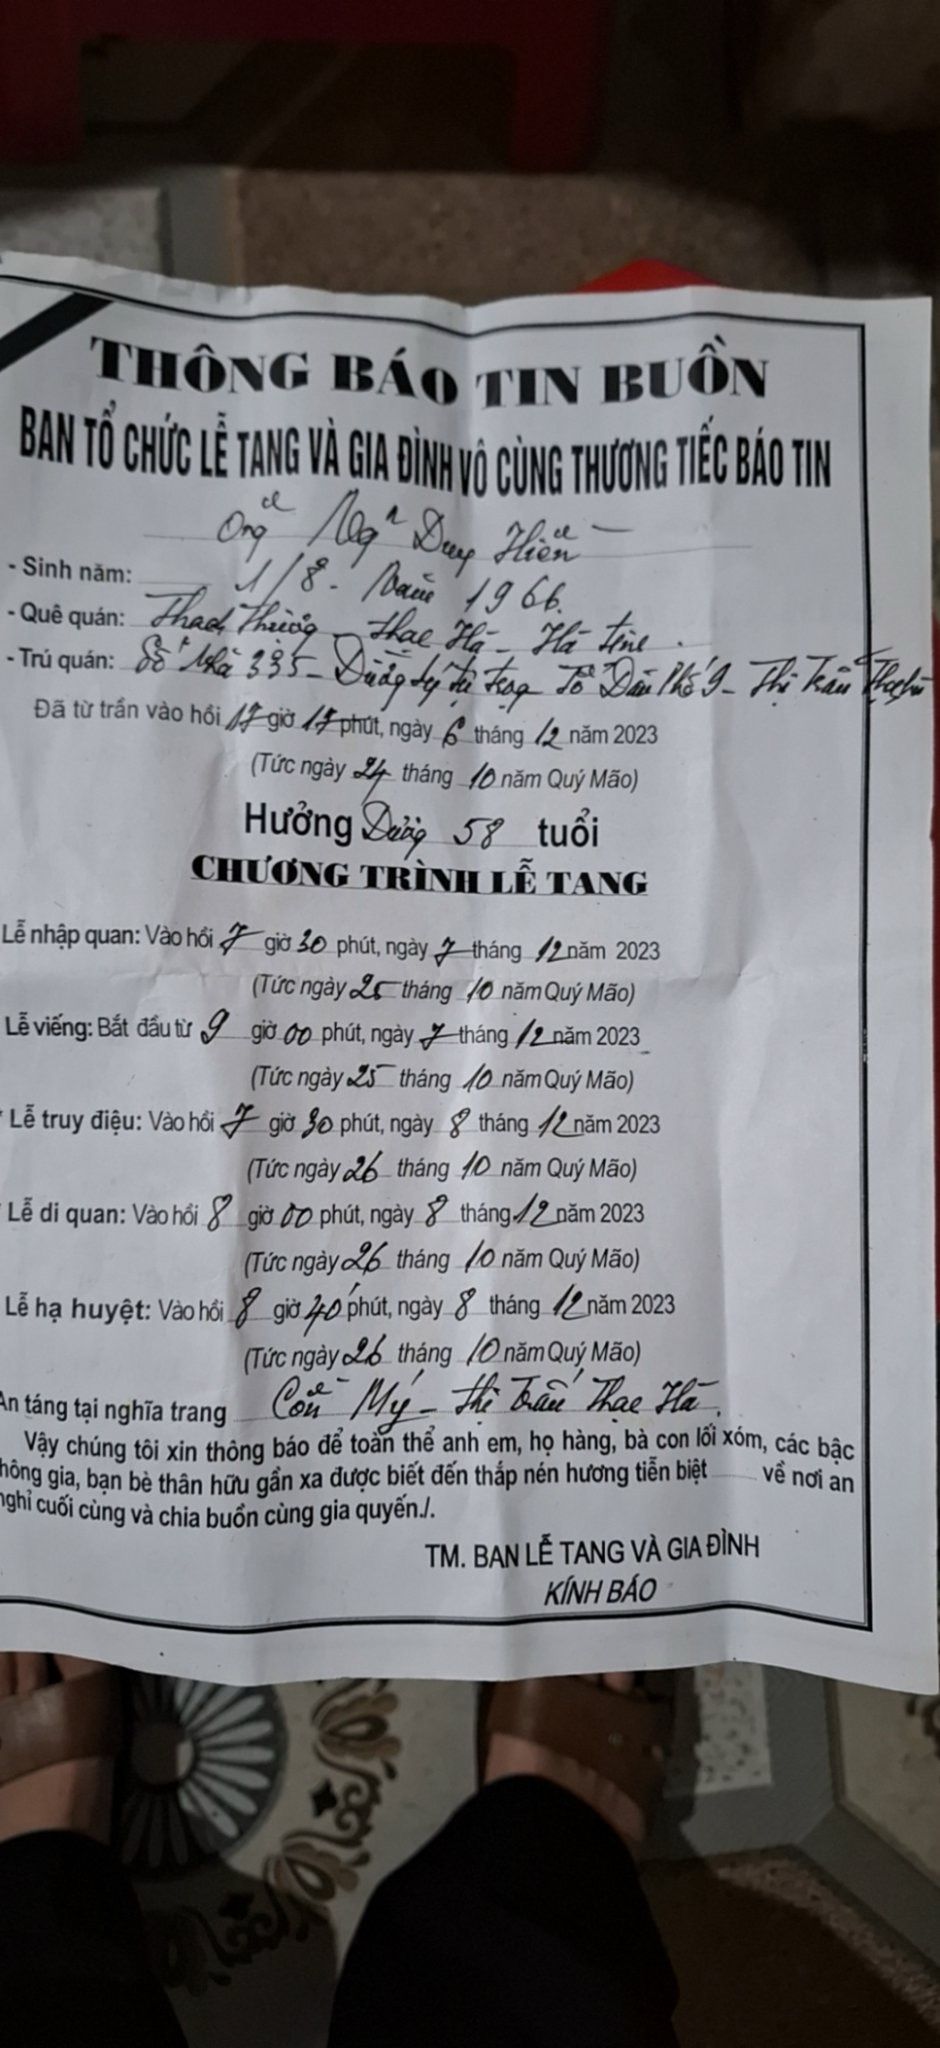 THÔNG BÁO TIN BUỒN
BAN TỔ CHỨC LỄ TANG VÀ GIA ĐÌNH VÔ CÙNG THƯƠNG TIẾC BÁO TIN
Duy Hiển
- Sinh năm: 1/8. Năm 1966.
- Quê quán: Thạch Thượng - Thạc Hà - Hà
- Trú quán: Số Nhà 335 - Đường Lý Tự Trọng Tổ Dân Phố 9 - Thị Trấn
Đã từ trần vào hồi 17 giờ 15 phút, ngày 6 tháng 12 năm 2023
(Tức ngày 24 tháng 10 năm Quý Mão)
Hưởng Dương 58 tuổi
CHƯƠNG TRÌNH LỄ TANG
Lễ nhập quan: Vào hồi 7 giờ 30 phút, ngày 7 tháng 12 năm 2023
(Tức ngày 25 tháng 10 năm Quý Mão)
Lễ viếng: Bắt đầu từ 9 giờ 00 phút, ngày 7 tháng 12 năm 2023
(Tức ngày 25 tháng 10 năm Quý Mão)
Lễ truy điệu: Vào hồi 7 giờ 30 phút, ngày 8 tháng 12 năm 2023
(Tức ngày 26 tháng 10 năm Quý Mão)
Lễ di quan: Vào hồi 8 giờ 00 phút, ngày 8 tháng 12 năm 2023
(Tức ngày 26 tháng 10 năm Quý Mão)
Lễ hạ huyệt: Vào hồi 8 giờ 40 phút, ngày 8 tháng 12 năm 2023
(Tức ngày 26 tháng 10 năm Quý Mão)
An táng tại nghĩa trang Cồn Mý - Thị Trấn Thạc Hà.
Vậy chúng tôi xin thông báo để toàn thể anh em, họ hàng, bà con lối xóm, các bậc
thông gia, bạn bè thân hữu gần xa được biết đến thắp nén hương tiễn biệt về nơi an
nghỉ cuối cùng và chia buồn cùng gia quyến./.
TM. BAN LỄ TANG VÀ GIA ĐÌNH
KÍNH BÁO